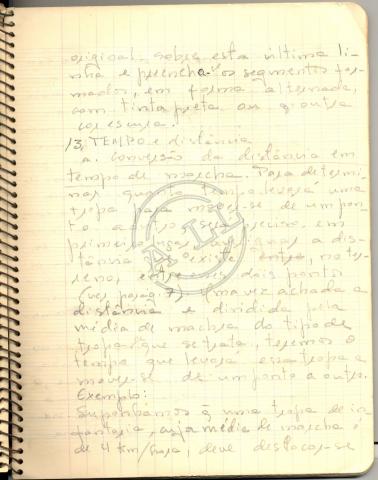 original. sobre esta última li-
nha e preencha-os segmentos for-
mados, em forma alternada,
com tinta preta ou outra
cor escura.
13, TEMPO e distância
a. conversão da distância em
tempo de marcha. Para determi-
nar quanto tempo levará uma
tropa para mover-se de um pon-
to a outro será preciso, em
primeiro lugar, a dis-
tância existente, no ter-
reno, entre esses dois pontos
(ver parag. 7). Uma vez achada a
distância e dividida pela
média de marcha do tipo de
tropa que se trata, teremos o
tempo que levará essa tropa a
mover-se de um ponto a outro.
Exemplo:
Suponhamos q uma tropa de in-
fantaria, cuja média de marcha é
de 4 km/hora, deve deslocar-se